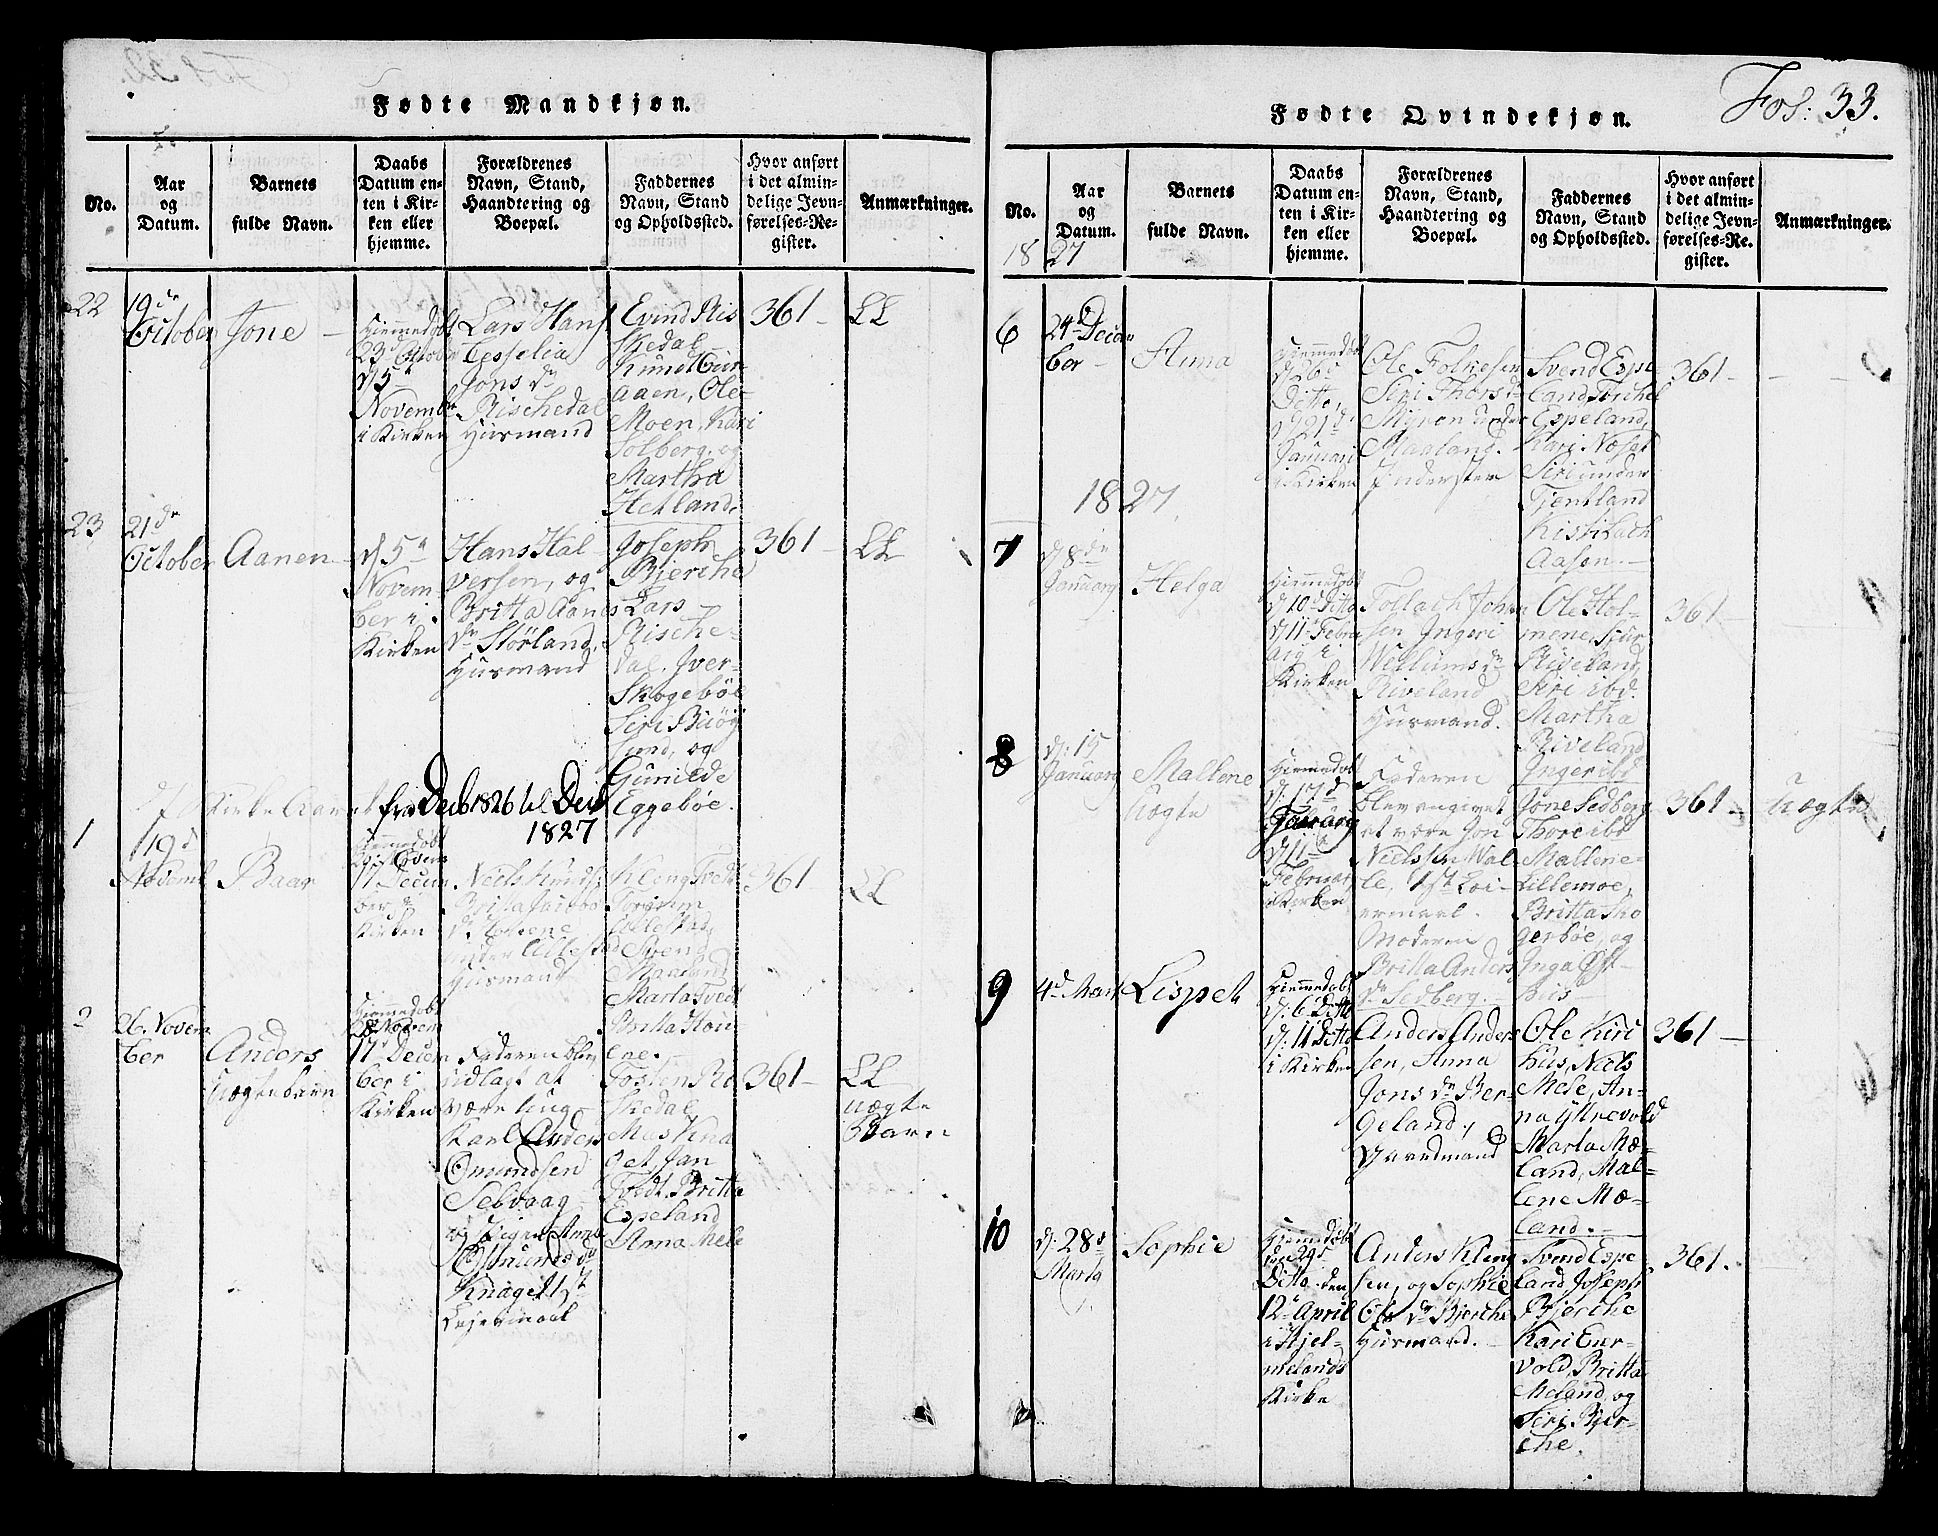 Fødte Mandkjøn.
No.
Aar
og
Datum.
Barnets
fulde Navn.
Daabs
Datum en-
ten i Kir-
ken eller
hjemme.
Forældrenes
Navn, Stand,
Haandtering og
Boepæl.
Faddernes
Navn, Stand
og Opholdssted.
Hvor anført
i det almin-
delige Jevn-
førelses-Re-
gister.
Anmærkninger.
22
19de
October
Jone
Hiemmedøbt
23 October
d 5te
Novembr
i Kirken
Lars Hans
Jons dr
Rischedal
Huusmand
Evind Ris
kedal
Knud Eur
aaen, Ole
Moen, Kari
Solberg, og
Martha
Hetland.
361
LL
23
21de
October
Aanen
d 5te
Novem
ber i
Kirken
Hans Hal
versen, og
Britta Aanes
dr Størland,
Huusmand
Joseph
Bjerche
Lars
Rische
dal. Iver
Skogebøe
Siri
sund, og
Gunilde
Eggebøe.
361
LL
Kirke Aaret fra Decb 1826 til Decb
1827
1
19d
Novemb
Baar
Hiemmedøbt
17 Decem
ber i
Kirken
Niels Knuds
Huusmand
Kleng Tvedt
Svend
Maaland
Marta Tvedt
Britta
361
LL
2
26. Novem
ber
Anders
uægte barn
Hiemmedøbt
28 Novem
17 Decem
ber i
Kirken
Faderen blev
udlagt at
være ung
karl Anders
Omundsen
Selvaag
og Pigen Anna
Osmunds dr
Knaget 1st
Leiermaal
Tosten Ris
kedal,
Mas Kna
get, Jan
Tvedt, Britta
Espeland
Anna Mele
361
LL
uægte
Barn
Fol: 33.
Fødte Qvindekjøn.
No.
Aar
og
Datum.
Barnets
fulde Navn.
Daabs
Datum en-
ten i Kir-
ken eller
hjemme.
Forældrenes
Navn, Stand,
Haandtering og
Boepæl.
Faddernes
Navn, Stand
og Opholdssted.
Hvor anført
i det almin-
delige Jevn-
førelses-Re-
gister.
Anmærkninger.
1827
6
24d Decem
ber
Anna
Hiemmedøbt
d 26
Ditto,
d 21d
Januari
i Kirken
Ole Folkesen
Siri Thors dr
Maaland.
Inderster
Svend Espe
land Torchel
Espeland,
Kari
Siri under
Tjentland
Aasen.
361
1827.
7
d 8de
Januarÿ
Helga
Hiemmedøbt
d 10 Ditto
d 11 Febru
arÿ i
Kirken
Tollach John
sen Ingeri
Willums dr
Riveland
Huusmand.
Ole Hol
mene, Siur
Riveland,
Siri ibd.
Martha
Riveland
Inger ibd
361
8
d: 15
Januarÿ
Mallene
uægte
Hiemmedøbt
d: 17d
Januarÿ
d 11te
Februar
i Kirken
Faderen
blev angivet
at være Jon
Nielssen Wal
le, 1st Lei
ermaal.
Moderen
Britta Anders
dr Sedberg.
Jone Sedberg
Thore ibd
Mallene
Lillemoe,
Britta Sko
gerbøe, og
Inga Øst
hus
361
Uægte
9
4d Mart
Lispet
Hiemmedøbt
d: 6 Ditto
d: 11 Ditto
i Kirken
Anders Anders
sen, Anna
Jons dr Ber
geland,
Gaardmand
Ole Kirc
hus, Niels
Mele, An
na Yttrevold
Marta Mæ
land, Mal
lene Mæ
land.
361
10
d: 28d
Marty
Sophie
Hiemmedøbt
den 29d
Ditto den
12 April
i Hjel
melands
Kirke
Anders Kleng
sen, og Sophie
Ole dr Bjerche
Huusmand.
Svend Espe
land Joseph
Bjerche
Kari Eur
vold, Britta
Meland, og
Siri Bjer
che.
361.